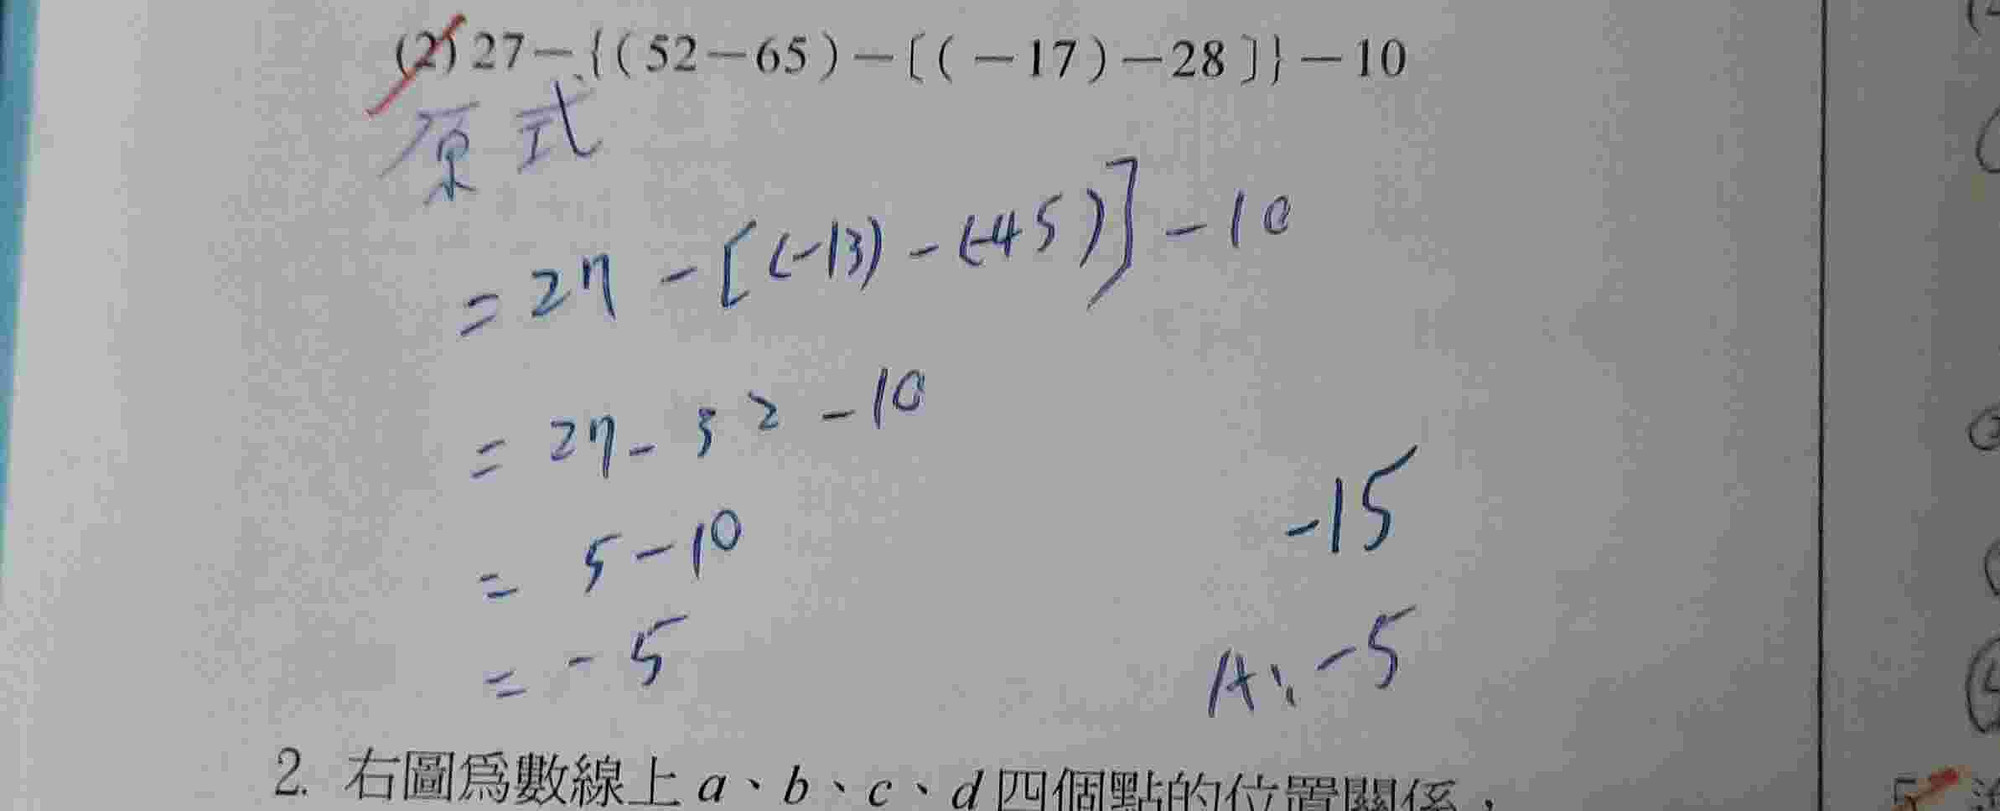 (2) 27－{(52－65)－〔(－17)－28〕}－10
原式
= 27 - [(-13) - (-45)] - 10
= 27 - 32 - 10
= 5 - 10
-15
= -5
A: -5
2. 右圖為數線上 a、b、c、d 四個點的位置關係，